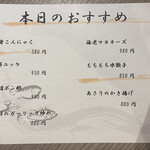 本日のおすすめ
こんにゃく
580円
ユッケ
950円
ポン酢
580円
のガーリック炒め
680円
海老マヨネーズ
850円
もちもち水餃子
850円
あさりのかき揚げ
580円